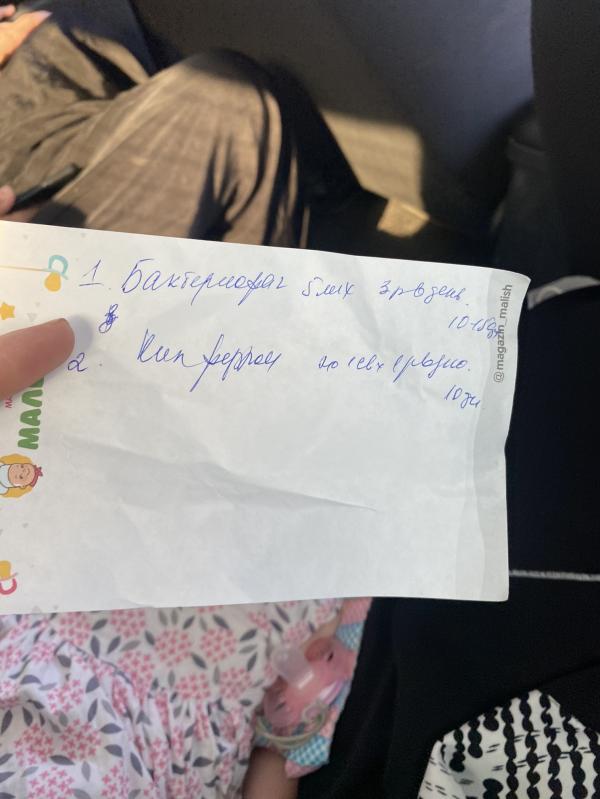 1. Бактериофаг 5мл х 3р в день.
10-15дн
2. Кипферрон по 1св х 1р/день.
10дн
@magazin_malish
МАЛ